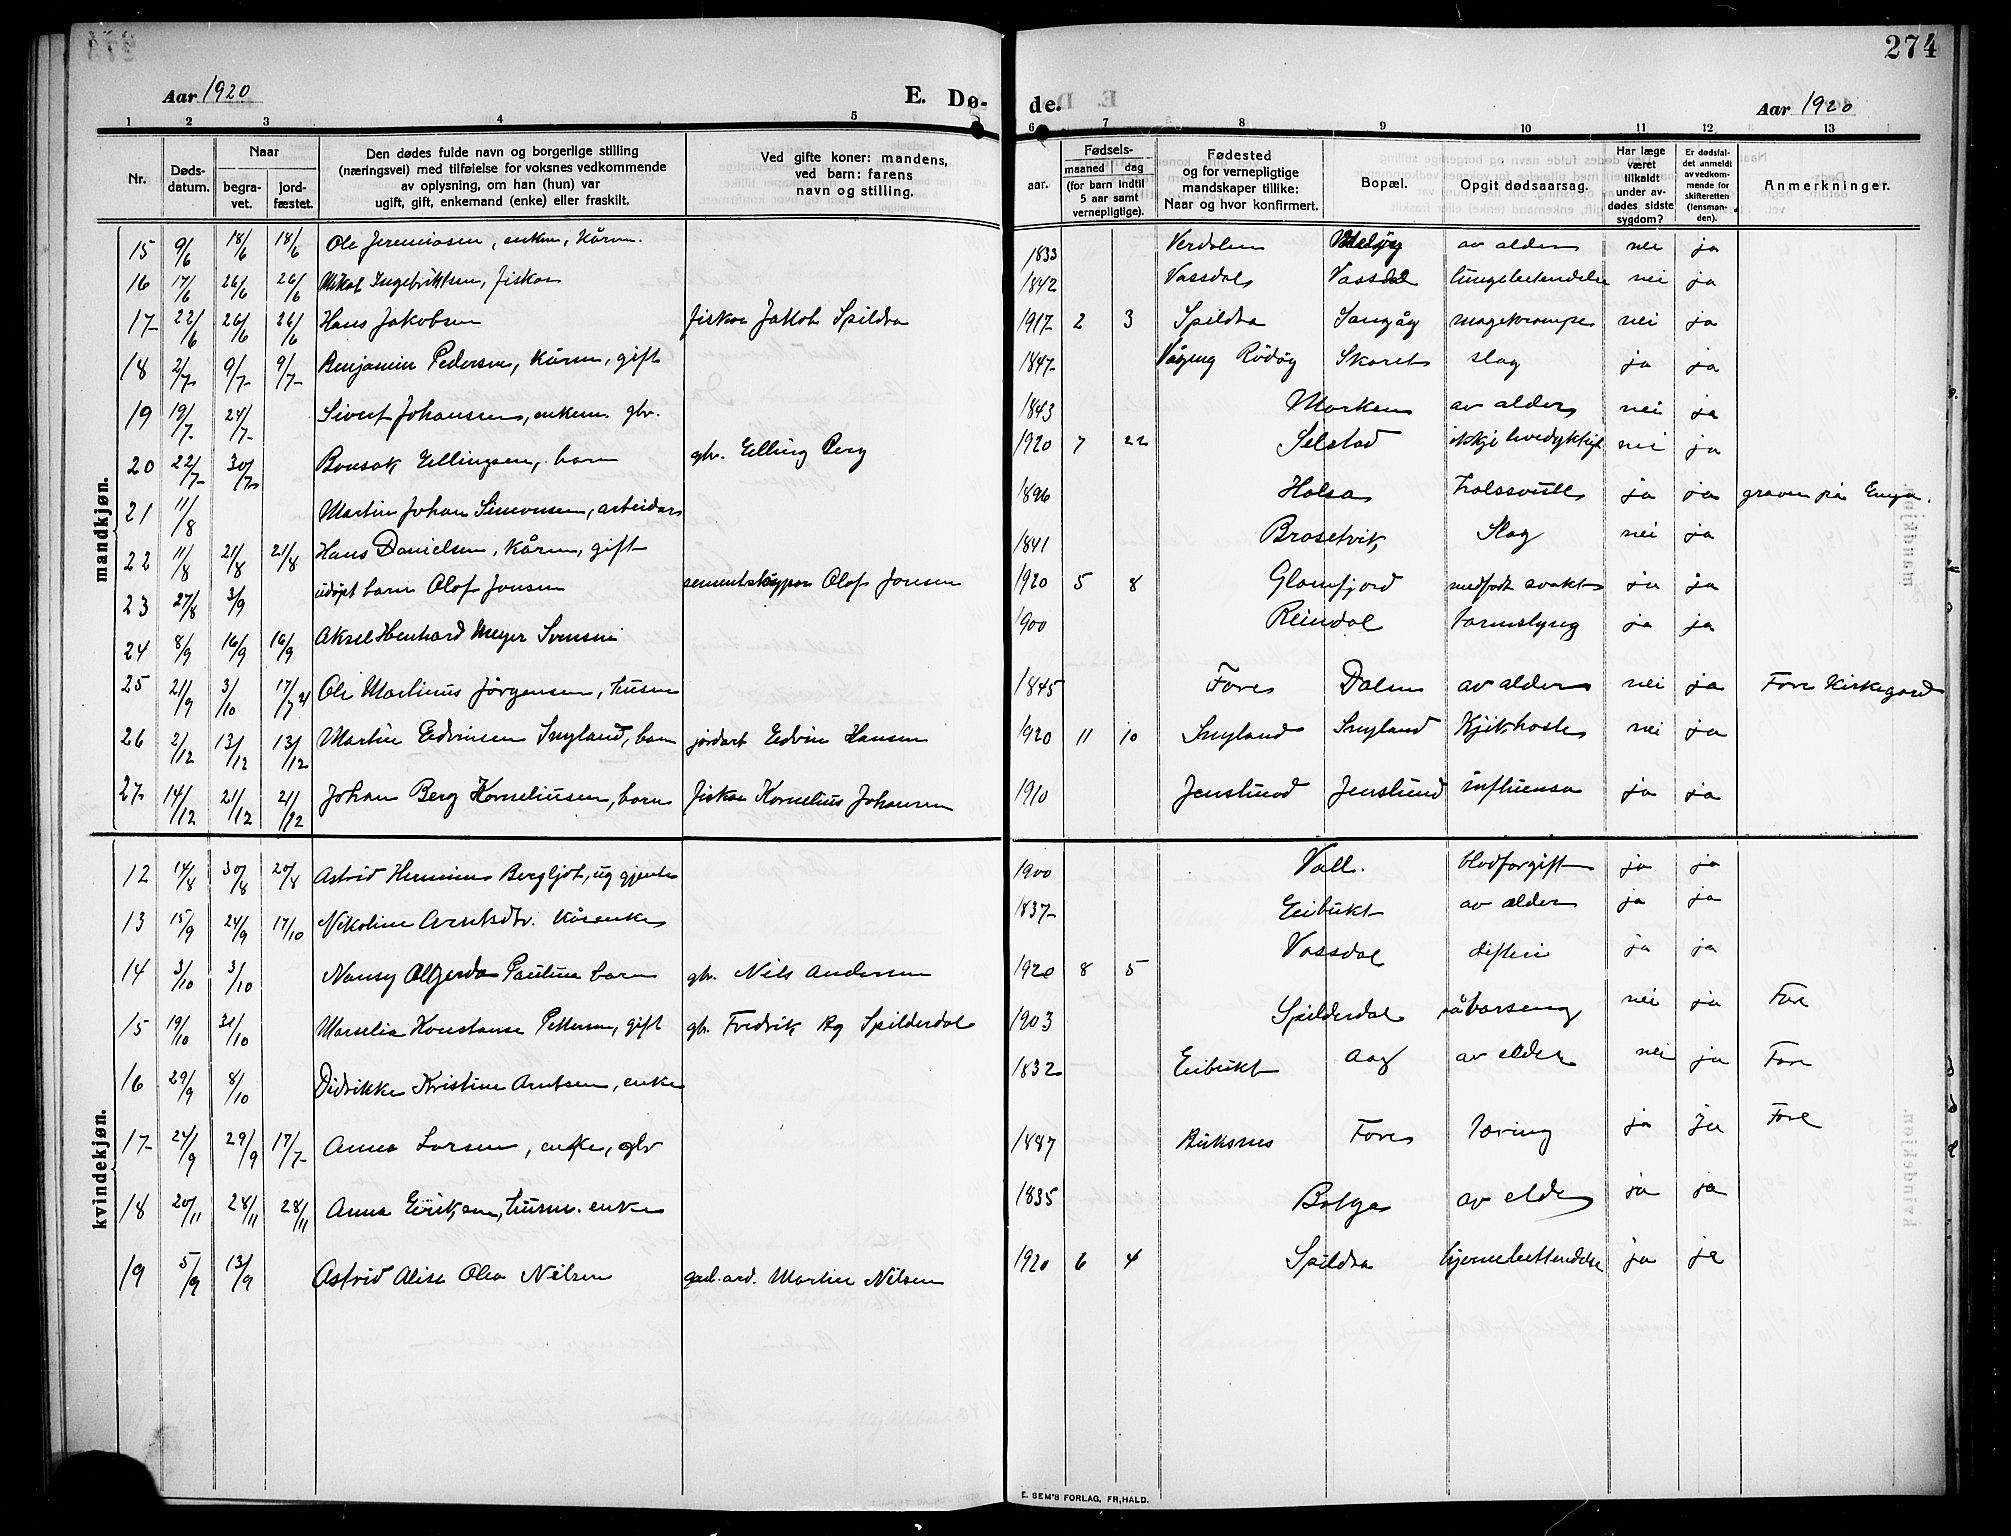 274
Aar 1920
E. Dø-
de.
Aar 1920
1 2 3 4 5 6 7 8 9 10 11 12 13
Nr.
Døds-
datum.
Naar
begra-
vet.
jord-
fæstet.
Den dødes fulde navn og borgerlige stilling
(næringsvei) med tilføielse for voksnes vedkommende
av oplysning, om han (hun) var
ugift, gift, enkemand (enke) eller fraskilt.
Ved gifte koner: mandens,
ved børn: farens
navn og stilling.
aar.
Fødsels-
maaned dag
(for barn indtil
5 aar samt
vernepligtige).
Fødested
og for vernepligtige
mandskaper tillike:
Naar og hvor konfirmert.
Bopæl.
Opgit dødsaarsag.
Har læge
været
tilkaldt
under av-
dødes sidste
sygdom?
Er dødsfal-
det anmeldt
av vedkom-
mende for
skifteretten
(lensman-
den).
Anmerkninger.
mandkjøn.
15 9/6 18/6 18/6 Ole Jeremiasen, enkem, kårm. 1833 Verdalen av alder nei ja
16 17/6 26/6 26/6 Mikal Ingebriktsen, fiskar 1842 Vassdal Vassdal lungebetendelse nei ja
17 22/6 26/6 26/6 Hans Jakobsen fiskar Jakob Spildra 1917 2 3 Spildra Sangåg magekrampe nei ja
18 2/7 9/7 9/7 Benjamin Pedersen, kårm, gift 1847 Vågeng Rødøy Skaret slag ja ja
19 19/7 24/7 Sivert Johanssen, enkem. gbr. 1843 Marken av alder nei ja
20 22/7 30/7 Bonsak Ellingsen, barn gbr. Elling Berg 1920 7 22 Selstad ikkje livedyktig nei ja
21 11/8 Martin Johan Simonsen, arbeidar 1896 Halsa Halssvull ja ja graven på Enga.
22 11/8 21/8 21/8 Hans Danielsen, kårm, gift 1841 Brasetvik Slag nei ja
23 27/8 3/9 udøpt barn Olaf Jonsen sementstøypar Olaf Jonsen 1920 5 8 Glomfjord medfødt svakt ja ja
24 8/9 16/9 16/9 Aksel Henhard Meyer Svensen 1900 Reindal tarmslyng ja ja
25 21/9 3/10 17/7 21 Ole Martinus Jørgensen, husm 1845 Fore Dalen av alder nei ja Fore Kirkegard
26 2/12 13/12 13/12 Martin Edvinsen Snyland, barn jordarb Edvin Hansen 1920 11 10 Snyland Snyland Kjikhoste nei ja
27 14/12 21/12 21/12 Johan Berg Korneliussen, barn fiskar Kornelius Johansen 1910 Jenslund Jenslund influensa ja ja
kvindekjøn.
12 14/8 30/8 20/8 Astrid Hermine Bergljot, ug gjente 1900 Vall. blodforgift ja ja
13 15/9 24/9 17/10 Nikoline Arntsdtr. kårenke 1837 Eibukt av alder ja ja
14 3/10 3/10 Nansy Algerda Pauline barn gbr. Nils Andersen 1920 8 5 Vassdal difteri ja ja
15 19/10 31/10 Marselia Konstanse Pettersen, gift gbr. Fredrik Ag Spilderdal 1903 Spilderdal på barseng nei ja Fore
16 29/9 8/10 Didrikke Kristine Arntsen, enke 1832 Eibukt Aag av elder nei ja Fore
17 24/9 29/9 17/7 Anna Larsen, enke, gbr 1887 Buksnes Fore tæring ja ja Fore
18 20/11 28/11 28/11 Anna Eriksen, husm. enke 1835 Bolga av elde ja ja
19 5/9 13/9 Astrid Alise Olea Nilsen Martin Nilsen 1920 6 4 Spildra hjernebettendelse ja ja
E. SEM'S FORLAG, FR,HALD.